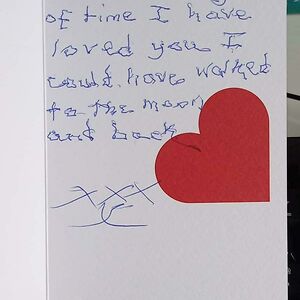 of time I have
loved you I
could have walked
to the moon
and back
xxx